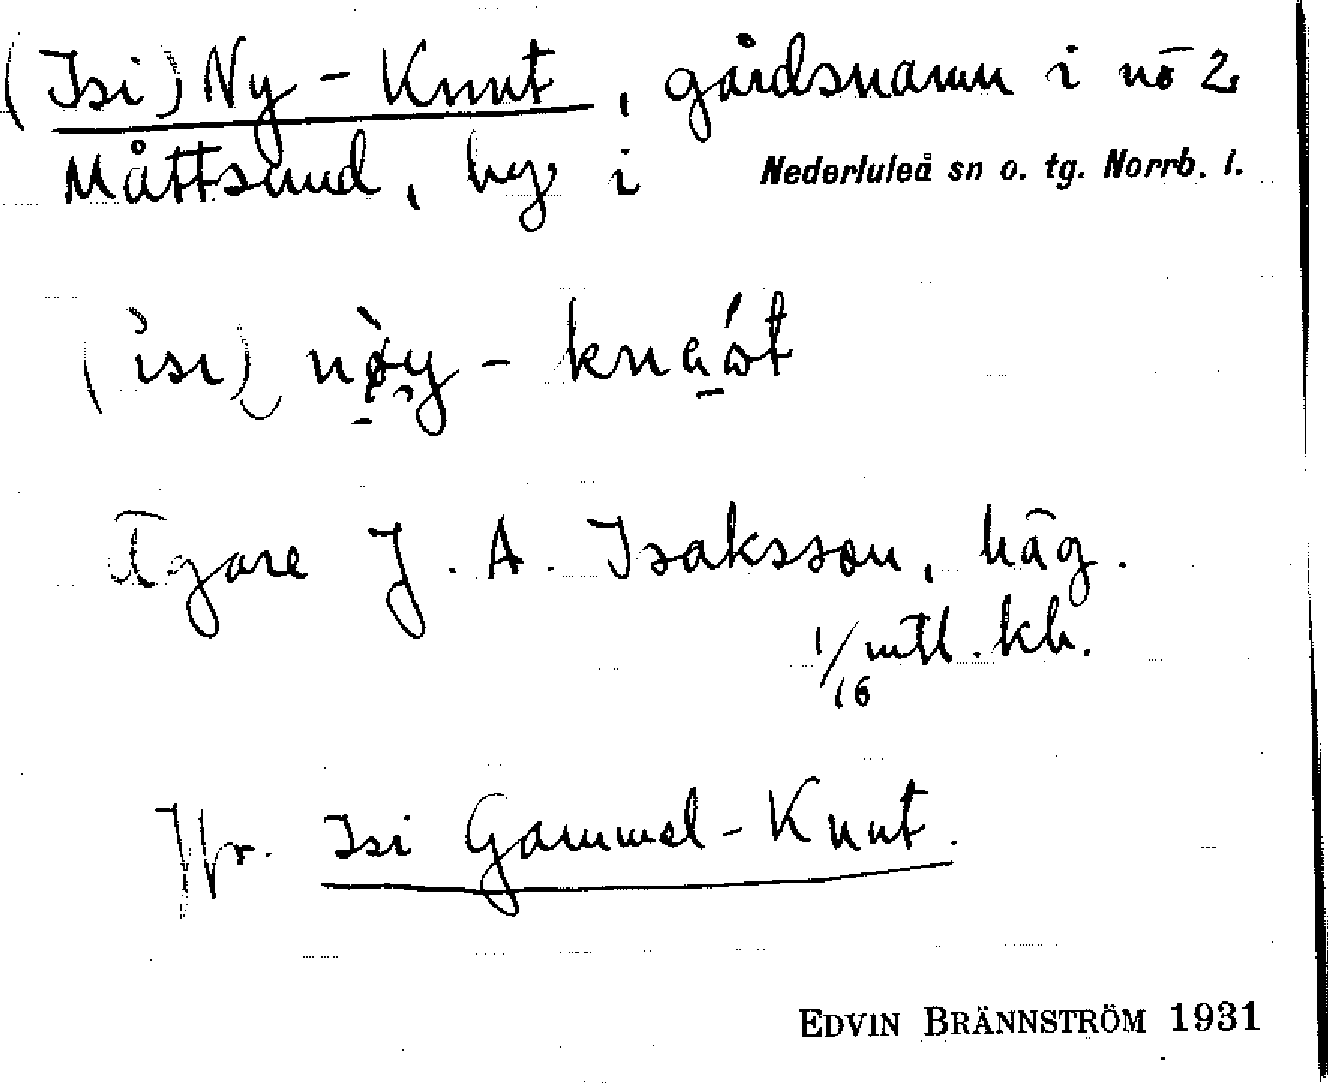 (Isi) Ny-Knut, gårdsnamn i nō 2
Måttsund, by i Nederluleå sn o. tg. Norrb. l.
(isi) nø̀y-knaót
Ägare J. A. Isaksson, häg.
1/16 mtl. kh.
Jfr. Isi Gammel-Knut.
EDVIN BRÄNNSTRÖM 1931